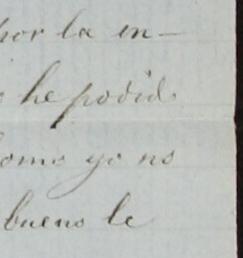 por la en-
he podid
como yo no
bueno le